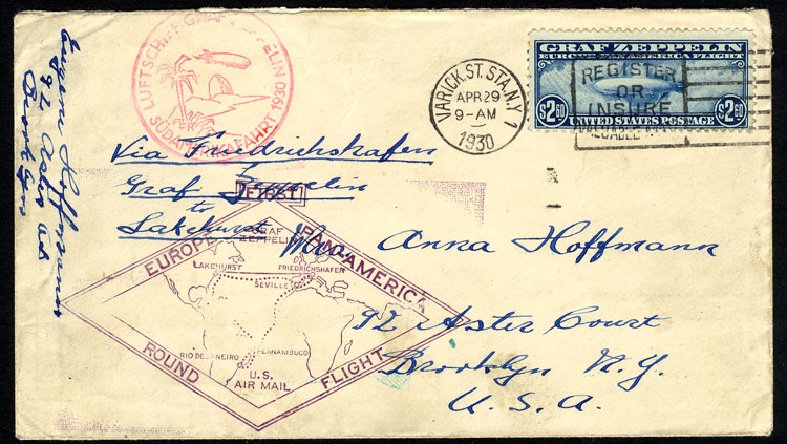 LUFTSCHIFF GRAF ZEPPELIN
SÜDAMERIKAFAHRT 1930
VARICK. ST. STA. N.Y. 1
APR 29
9-AM
1930
GRAF ZEPPELIN
EUROPE PAN-AMERICA FLIGHT
REGISTER
OR
INSURE
VALUABLE
$2.60 UNITED STATES POSTAGE $2.60
Eugene Hoffmann
92 Aster Ct
Brooklyn
Via Friedrichshafen
Graf Zeppelin
to
Lakehurst
Mrs. Anna Hoffmann
92 Aster Court
Brooklyn N.Y.
U.S.A.
FIRST
EUROPE PAN-AMERICA
GRAF
ZEPPELIN
LAKEHURST FRIEDRICHSHAFEN
SEVILLE
RIO DE JANEIRO PERNAMBUCO
U.S.
AIR MAIL
ROUND FLIGHT